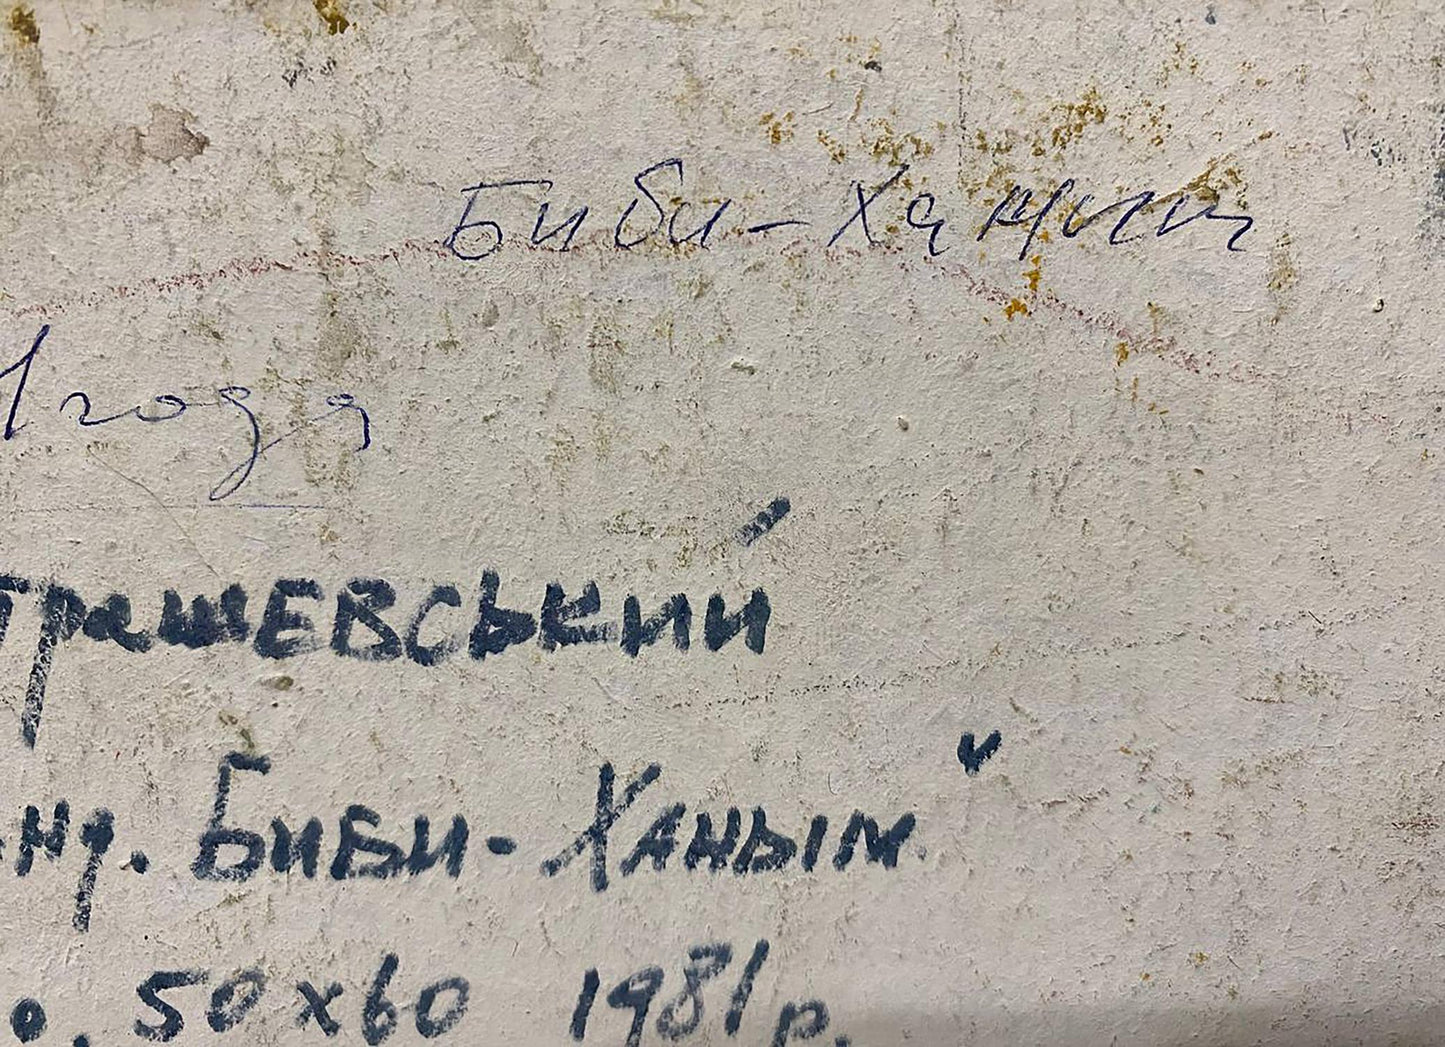 Биби-Ханым
1 года
трашевський
Биби-Ханым"
о. 50х60 1981 р.